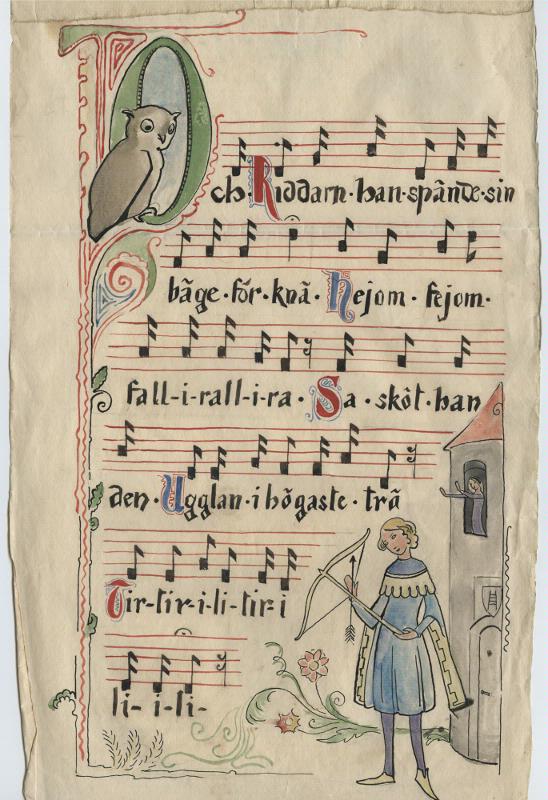 Och·Riddarn·han·spände·sin
båge·för·knä·Hejom·fejom·
fall-i-rall-i-ra·Sa·sköt·han
den·Ugglan·i högaste·trä
Tir-tir-i-li-tir-i
li-i-li-